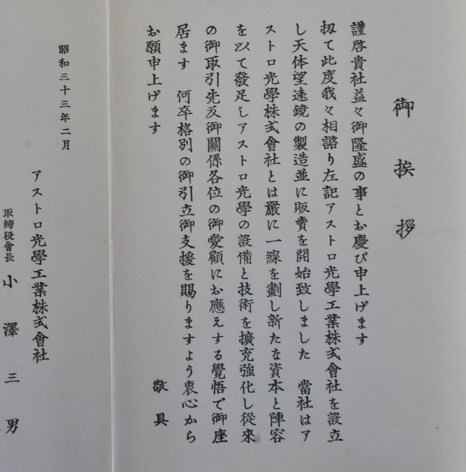 御挨拶
謹啓貴社益々御隆盛の事とお慶び申上げます
扨て此度我々相諮り左記アストロ光學工業株式會社を設立
し天体望遠鏡の製造並に販賣を開始致しました　當社はア
ストロ光學株式會社とは嚴に一線を劃し新たな資本と陣容
を以て發足しアストロ光學の設備と技術を擴充強化し從來
の御取引先及御關係各位の御愛顧にお應えする覺悟で御座
居ます　何卒格別の御引立御支援を賜りますよう衷心から
お願申上げます
敬具
昭和三十三年二月
アストロ光學工業株式會社
取締役會長　小澤三男